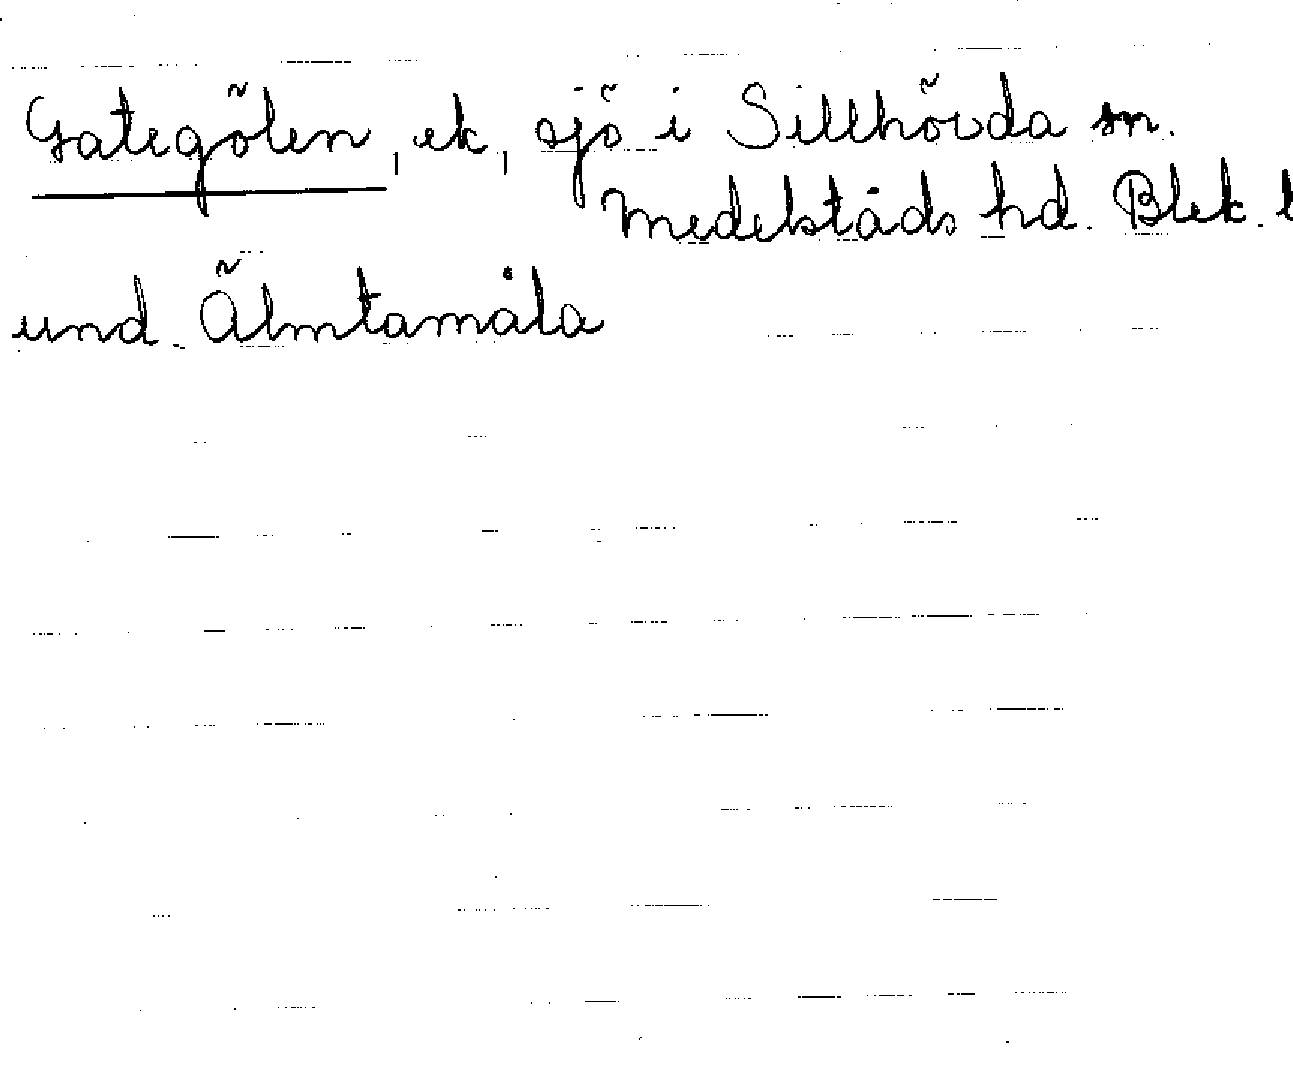 Gategölen, ek, sjö i Sillhövda sn.
Medelstads hd. Blek. l
und. Älmtamåla